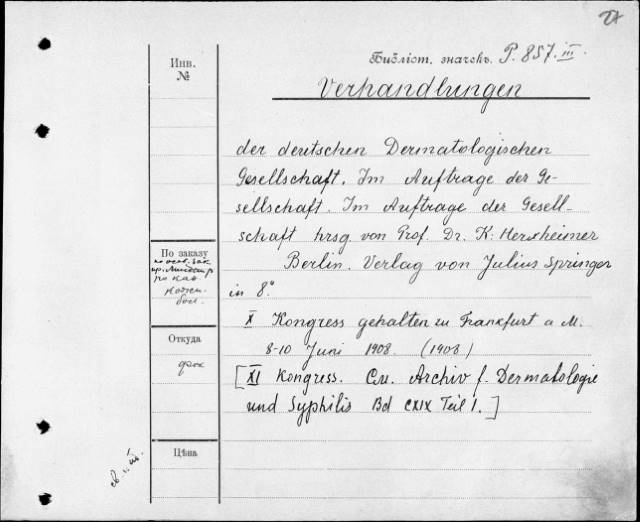 Библіот. значекъ. P. 857. III.
Verhandlungen
Инв.
№
der deutschen Dermatologischen
Gesellschaft. Im Auftrage der Ge-
sellschaft. Im Auftrage der Gesell-
schaft hrsg von Prof. Dr. K. Herxheimer
Berlin. Verlag von Julius Springer
in 8°
По заказу
X Kongress gehalten zu Frankfurt a M.
8-10 Juni 1908. (1908)
Откуда
[XI Kongress. См. Archiv f. Dermatologie
und Syphilis Bd CXIX Teil 1.]
Цѣна